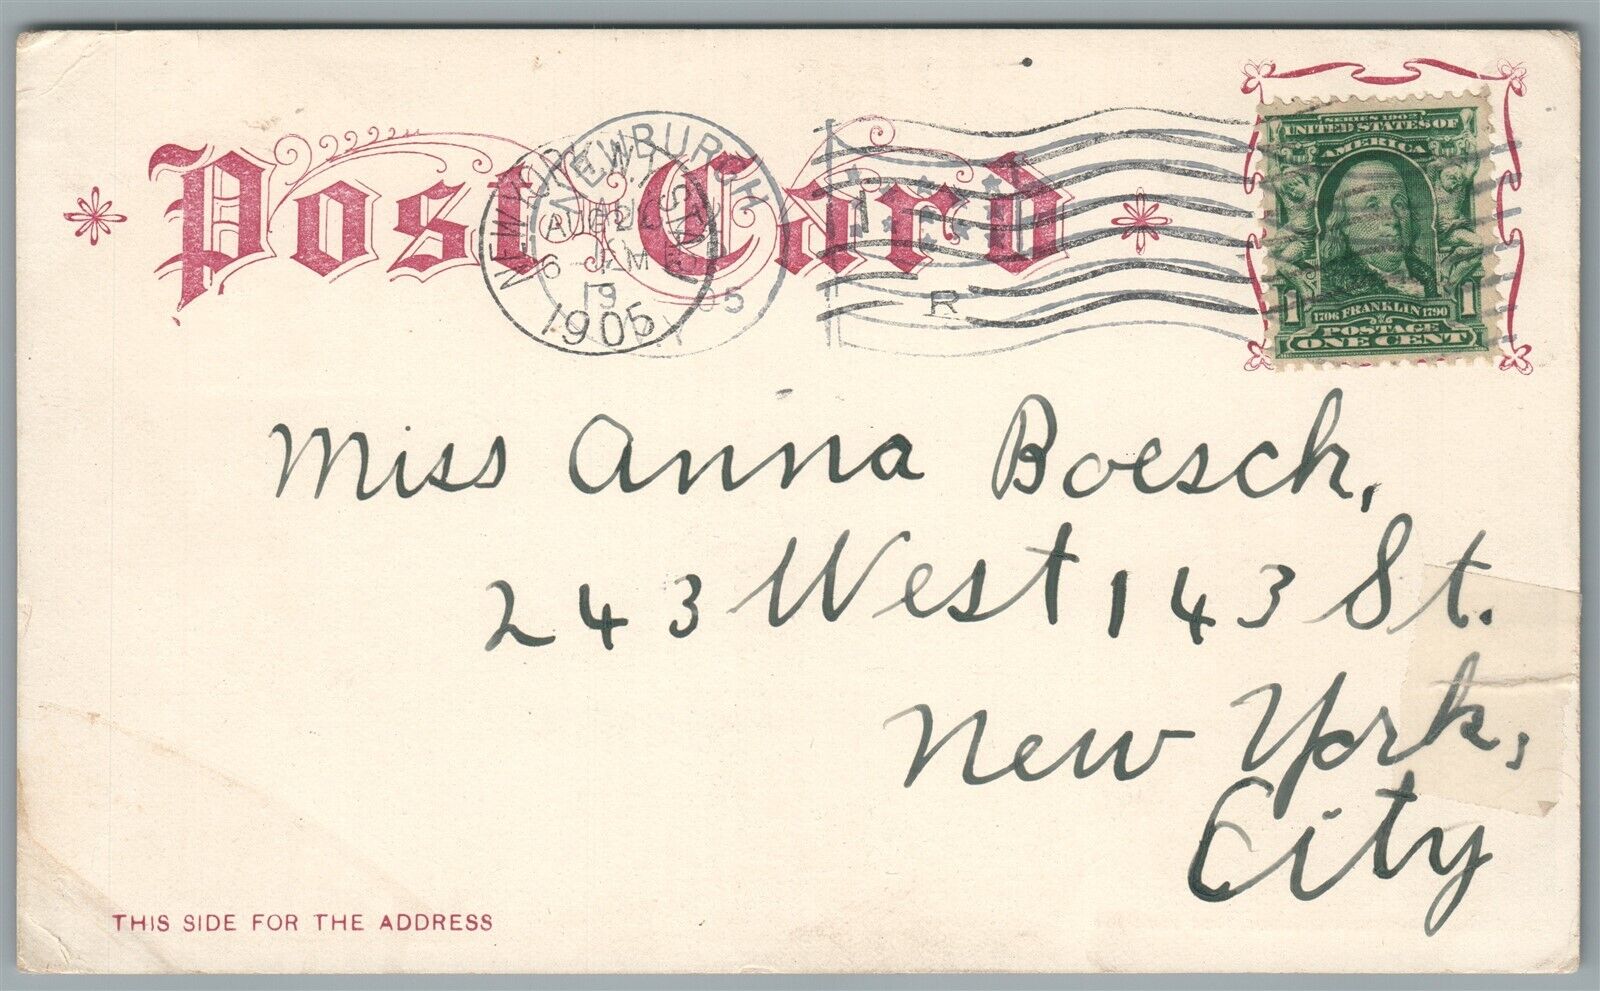 Post Card
NEWBURGH
NEW YORK, N.Y. STA.
AUG
AM
19
05
1905
N.Y.
R
SERIES 1902
UNITED STATES OF
AMERICA
1 1706 FRANKLIN 1790 1
POSTAGE
ONE CENT
Miss Anna Boesch,
243 West 143 St.
New York,
City
THIS SIDE FOR THE ADDRESS